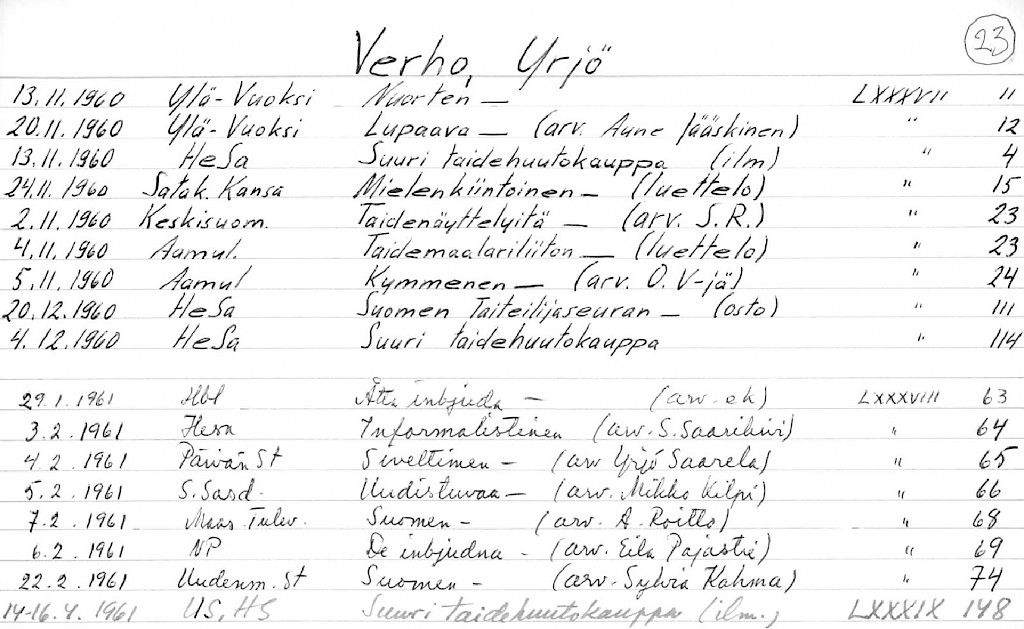 23
Verho, Yrjö
13.11.1960 Ylä-Vuoksi Nuorten — LXXXVII 11
20.11.1960 Ylä-Vuoksi Lupaava — (arv. Aune Jääskinen) " 12
13.11.1960 HeSa Suuri taidehuutokauppa (ilm) " 4
24.11.1960 Satak. Kansa Mielenkiintoinen — (luettelo) " 15
2.11.1960 Keskisuom. Taidenäyttelyitä — (arv. S.R.) " 23
4.11.1960 Aamul. Taidemaalariliiton — (luettelo) " 23
5.11.1960 Aamul Kymmenen — (arv. O. V-jä) " 24
20.12.1960 HeSa Suomen Taiteilijaseuran — (osto) " 111
4.12.1960 HeSa Suuri taidehuutokauppa " 114
29.1.1961 Hbl Åtta inbjuda — (arv. ek) LXXXVIII 63
3.2.1961 Hesa Informalistinen (arv. S. Saarikivi) " 64
4.2.1961 Päivän St Siveltimen — (arv Yrjö Saarela) " 65
5.2.1961 S. Sosd. Uudistuvaa — (arv. Mikko Kilpi) " 66
7.2.1961 Maas. Tulev. Suomen — (arv. A. Roitto) " 68
6.2.1961 NP De inbjudna — (arv. Eila Pajastie) " 69
22.2.1961 Uudenm. St Suomen — (arv. Sylvia Kahma) " 74
14-16.4.1961 US, HS Suuri taidehuutokauppa (ilm.) LXXXIX 148